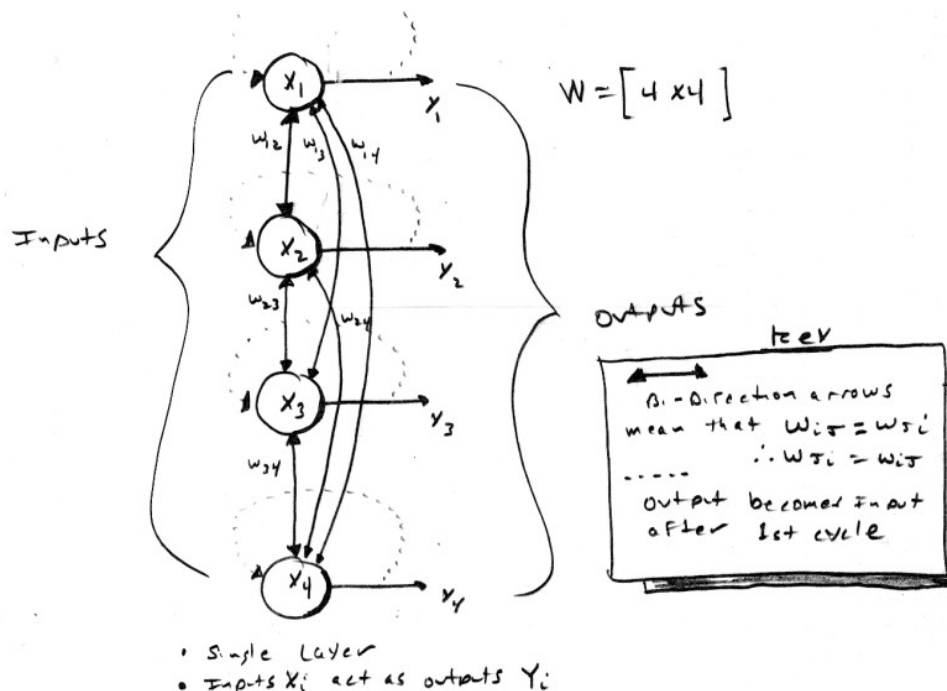 X1
Y1
W = [ 4 x4 ]
w12
w13
w14
Inputs
X2
Y2
w23
w24
Outputs
Key
Bi-Direction arrows
mean that wiJ = wJi
∴ wJi = wiJ
.....
output becomes Input
after 1st cycle
X3
Y3
w34
X4
Y4
• Single Layer
• Inputs Xi act as outputs Yi